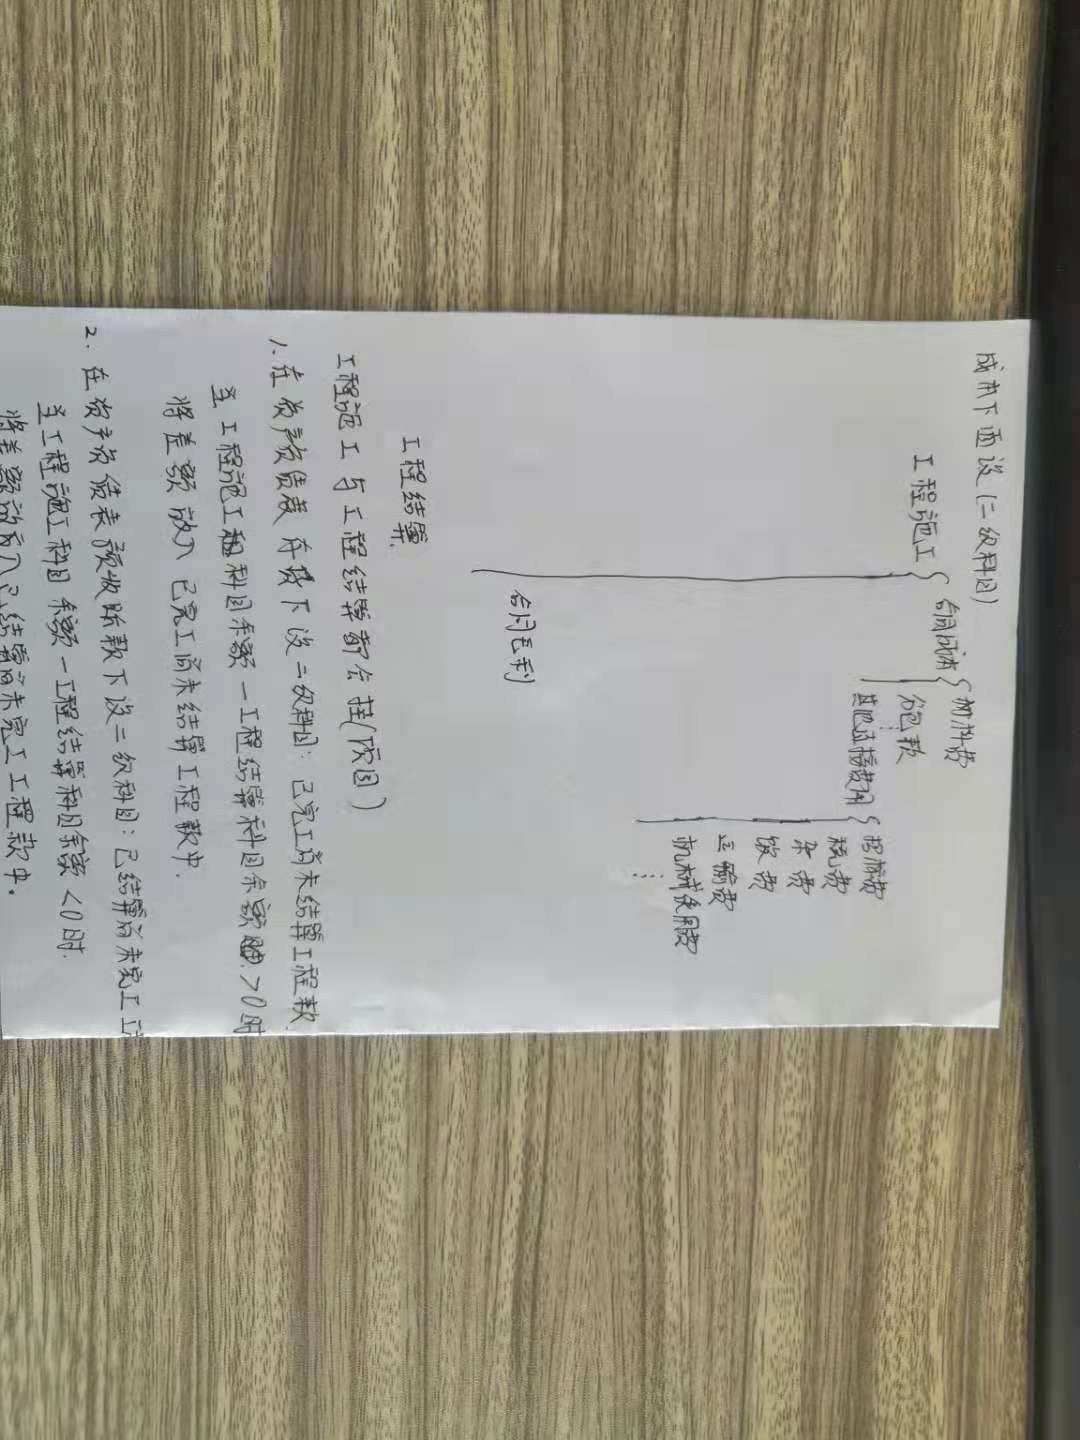 成本下面设(二级科目)
工程施工{合同成本{材料费
分包款
其他直接费用{招标费
税费
杂费
饮费
运输费
机械使用费
……
合同毛利
工程结算
工程施工与工程结算都会挂(项目)
1.在资产负债表存货下设二级科目:已完工尚未结算工程款
至工程施工科目余额-工程结算科目余额>0时
将差额放入已完工尚未结算工程款中.
2.在资产负债表预收账款下设二级科目:已结算尚未完工工
至工程施工科目余额-工程结算科目余额<0时.
将差额放入已结算尚未完工工程款中。